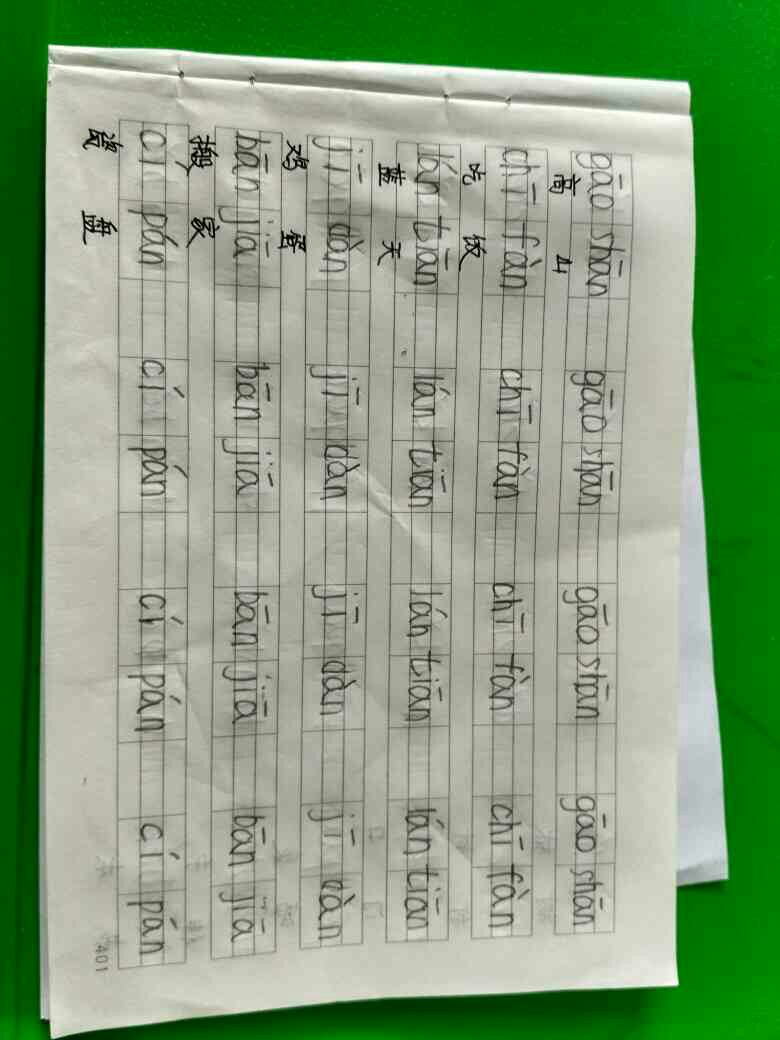 gāo shān gāo shān gāo shān gāo shān
高 山
chī fàn chī fàn chī fàn chī fàn
吃 饭
lán tiān lán tiān lán tiān lán tiān
蓝 天
jī dàn jī dàn jī dàn jī dàn
鸡 蛋
bān jiā bān jiā bān jiā bān jiā
搬 家
cí pán cí pán cí pán cí pán
瓷 盘
401